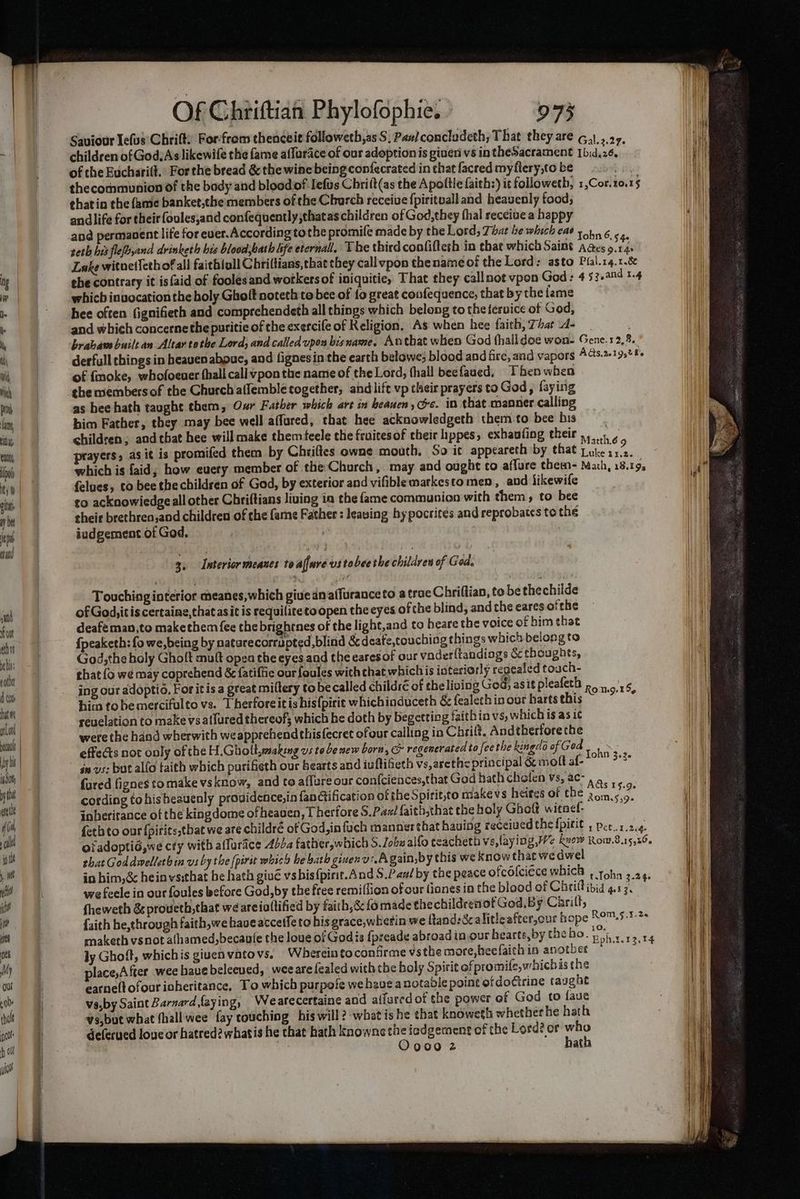 Of Chriſtian Phyloſophie. 975
Saviour Ieſus Chriſt. For from thence it followeth, as S. Paul concludeth, That they are Gal.3.27.
children of God. As likewiſe the ſame aſſurāce of our adoption is giuen vs in the Sacrament Ibid.26.
of the Euchariſt. For the bread & the wine being conſecrated in that ſacred myſtery, to be
the communion of the body and blood of Ieſus Chriſt (as the Apoſtle ſaith:) it followeth, 1,Cor.10.15
that in the ſame banket, the members of the Church receiue ſpirituall and heauenly food,
and life for their ſoules, and conſequently, that as children of God, they ſhal receiue a happy
and permanent life for euer. According to the promiſe made by the Lord, That he which eae Iohn 6.54.
teth his fleſh, and drinketh his blood, hath life eternall. The third conſiſteth in that which Saint Actes 9.14.
Luke witneſſeth of all faithfull Chriſtians, that they call vpon the name of the Lord: as to Pſal.14.1.&
the contrary it is ſaid of fooles and workers of iniquitie, That they call not vpon God: 4 53. and 1.4
which inuocation the holy Ghoſt noteth to bee of ſo great conſequence, that by the ſame
hee often ſignifieth and comprehendeth all things which belong to the ſeruice of God,
and which concerne the puritie of the exerciſe of Religion. As when hee ſaith, That A-
braham built an Altar to the Lord, and called vpon his name. An that when God ſhall doe won- Gene.12.8.
derfull things in heauen aboue, and ſignes in the earth belowe; blood and fire, and vapors Acts.2.19,
of ſmoke, whoſoeuer ſhall call vpon the name of the Lord, ſhall bee ſaued, Then when
the members of the Church aſſemble together, and lift vp their prayers to God, ſaying
as hee hath taught them, Our Father which art in heauen, &c. in that manner calling
him Father, they may bee well aſſured, that hee acknowledgeth them to bee his
children, and that hee will make them feele the fruites of their lippes, exhauſing their Matth.6 9
prayers, as it is promiſed them by Chriſtes owne mouth. So it appeareth by that Luke 11.2.
which is ſaid, how euery member of the Church, may and ought to aſſure them- Math, 18.19,
ſelues, to bee the children of God, by exterior and viſible markes to men, and likewiſe
to acknowledge all other Chriſtians liuing in the ſame communion with them, to bee
their brethren, and children of the ſame Father: leauing hypocrites and reprobates to the
iudgement of God.
3. Interior meanes to aſſure vs to bee the children of God.
Touching interior meanes, which giue an aſſurance to a true Chriſtian, to be the childe
of God, it is certaine, that as it is requiſite to open the eyes of the blind, and the eares of the
deafe man, to make them ſee the brightnes of the light, and to heare the voice of him that
ſpeaketh: ſo we, being by nature corrupted, blind & deafe, touching things which belong to
God, the holy Ghoſt muſt open the eyes and the eares of our vnderſtandings & thoughts,
that ſo we may coprehend & ſatiſfie our ſoules with that which is interiorly reuealed touch-
ing our adoptiō. For it is a great miſtery to be called childrē of the liuing God, as it pleaſeth Rom.9.16,
him to be mercifull to vs. Therfore it is his ſpirit which induceth & ſealeth in our harts this
reuelation to make vs aſſured thereof, which he doth by begetting faith in vs, which is as it
were the hand wherwith we apprehend this ſecret of our calling in Chriſt. And therfore the
effects not only of the H. Ghoſt, making vs to be new born, & regenerated to ſee the kingdō of God Iohn 3.3.
in vs: but alſo faith which purifieth our hearts and iuſtifieth vs, are the principal & moſt aſ-
ſured ſignes to make vs know, and to aſſure our conſciences, that God hath choſen vs, ac- Acts 15.9.
cording to his heauenly prouidence, in ſanctification of the Spirit, to make vs heires of the Rom.5.9.
inheritance of the kingdome of heauen, Therfore S. Paul ſaith, that the holy Ghoſt witneſ-
ſeth to our ſpirits, that we are childrē of God, in ſuch manner that hauing receiued the ſpirit 1 Pet.1.2.4.
of adoptiō, we cry with aſſurāce Abba father, which S. Iohn alſo teacheth vs, ſaying, We know Rom.8.15,16.
that God dwelleth in vs by the ſpirit which he hath giuen vs. Again, by this we know that we dwel
in him, & he in vs: that he hath giuē vs his ſpirit. And S. Paul by the peace of cōſciēce which 1.Iohn 3.24.
we feele in our ſoules before God, by the free remiſſion of our ſinnes in the blood of Chriſt ibid 4.13.
ſheweth & proueth, that we are iuſtified by faith, & ſo made the children of God. By Chriſt,
faith he, through faith, we haue acceſſe to his grace, wherin we ſtand: & a litle after, our hope Rom.5.1.2.
maketh vs not aſhamed, becauſe the loue of God is ſpreade abroad in our hearts, by the ho- 10.
ly Ghoſt, which is giuen vnto vs. Wherein to confirme vs the more, hee ſaith in another Eph.1.13,14
place, After wee haue beleeued, wee are ſealed with the holy Spirit of promiſe, which is the
earneſt of our inheritance. To which purpoſe we haue a notable point of doctrine taught
vs, by Saint Barnard, ſaying, We are certaine and aſſured of the power of God to ſaue
vs, but what ſhall wee ſay touching his will? what is he that knoweth whether he hath
deſerued loue or hatred? what is he that hath knowne the iudgement of the Lord? or who
Oooo 2 hath